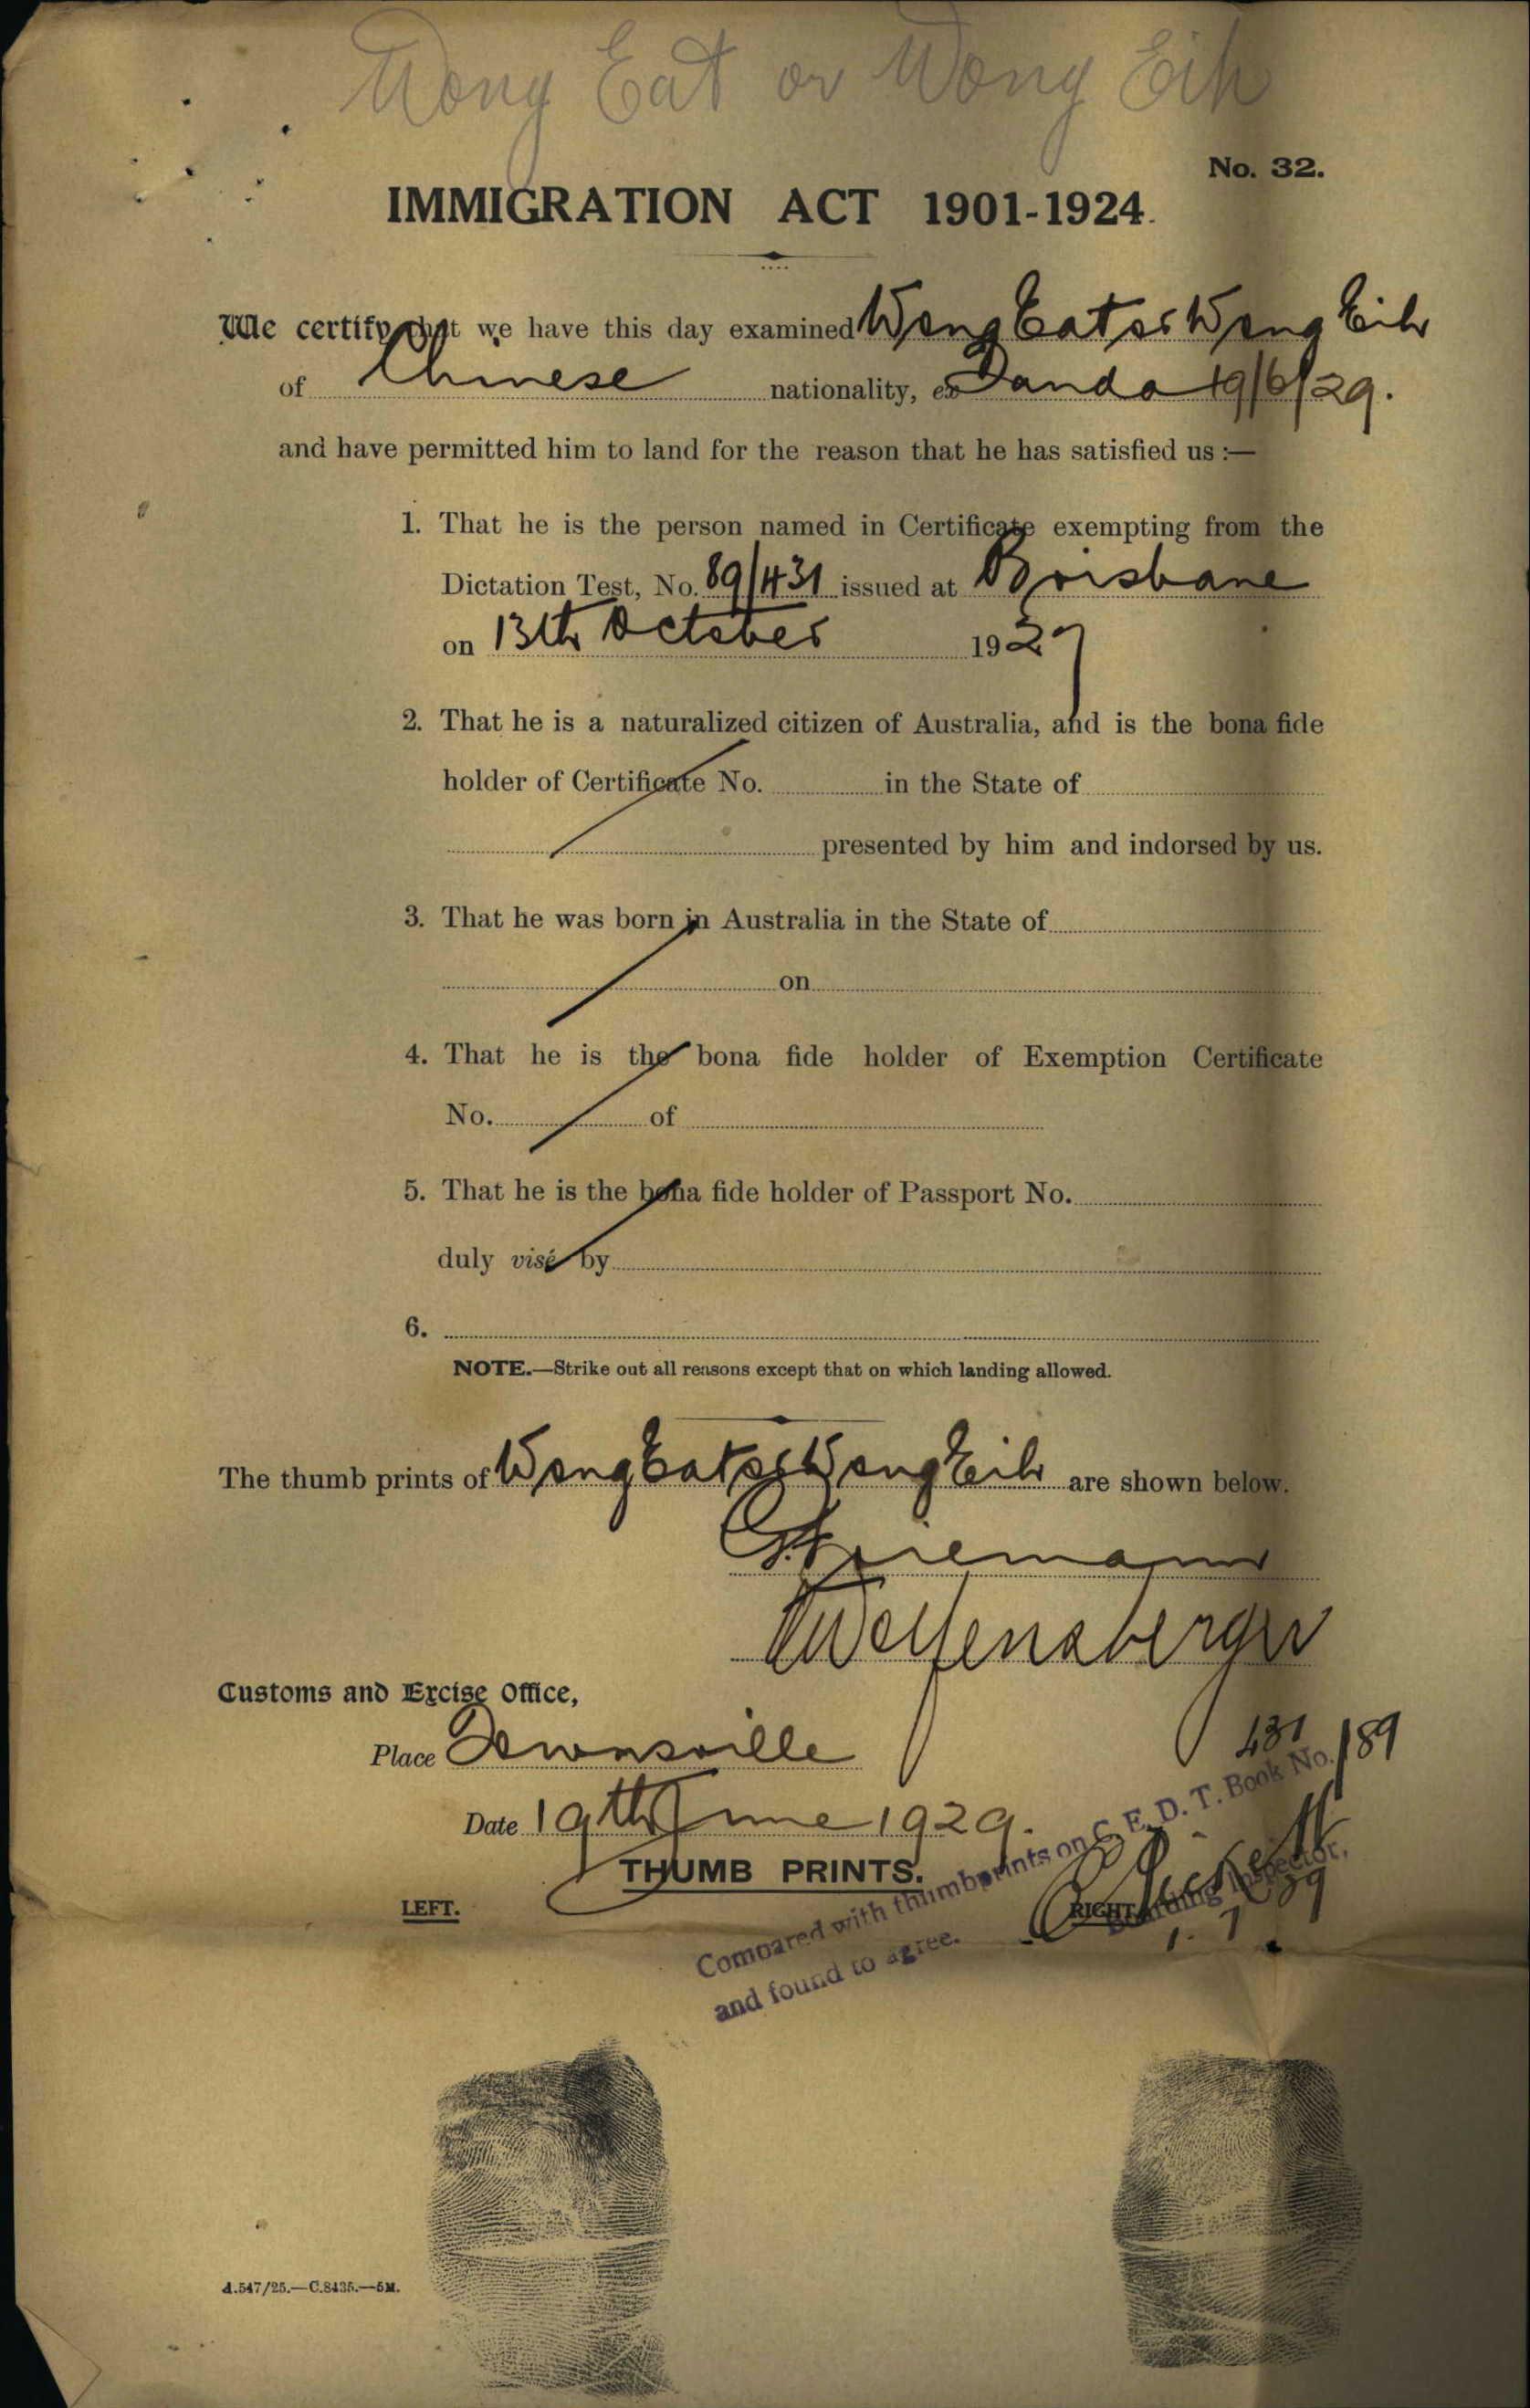 Wong Eat or Wong Eih
No. 32.
IMMIGRATION ACT 1901-1924.
We certify that we have this day examined Wong Eat or Wong Eih
of Chinese nationality, ex Tanda 19/6/29.
and have permitted him to land for the reason that he has satisfied us :—
1. That he is the person named in Certificate exempting from the
Dictation Test, No. 89/431 issued at Brisbane
on 13th October 1927
2. That he is a naturalized citizen of Australia, and is the bona fide
holder of Certificate No. in the State of
presented by him and indorsed by us.
3. That he was born in Australia in the State of
on
4. That he is the bona fide holder of Exemption Certificate
No. of
5. That he is the bona fide holder of Passport No.
duly visé by
6.
NOTE.—Strike out all reasons except that on which landing allowed.
The thumb prints of Wong Eat or Wong Eih are shown below.
Wolfensberger
Customs and Excise Office,
Place Townsville
Date 19th June 1929.
THUMB PRINTS.
LEFT.
RIGHT.
Compared with thumbprints on C. E. D. T. Book No. 431/89
and found to agree.
Boarding Inspector.
1. 7 29
A.547/25.—C.8435.—5M.